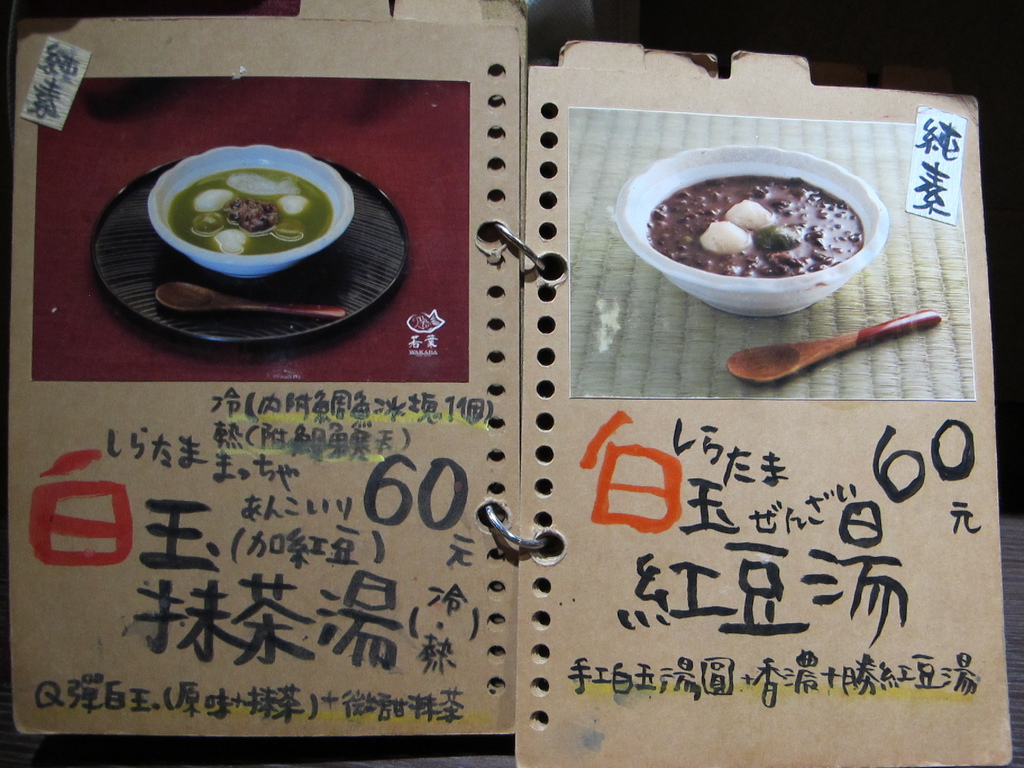 純素
若葉
WAKABA
冷(內附鯛魚冰塊1個)
熱(附鯛魚燒1)
しらたま
まっちゃ
あんこいり
白玉(加紅豆)
60元
抹茶湯(冷.熱)
Q彈白玉.(原味+抹茶)+微甜抹茶
純素
しらたま
ぜんざい
白玉
60元
紅豆湯
手工白玉湯圓+香濃+勝紅豆湯